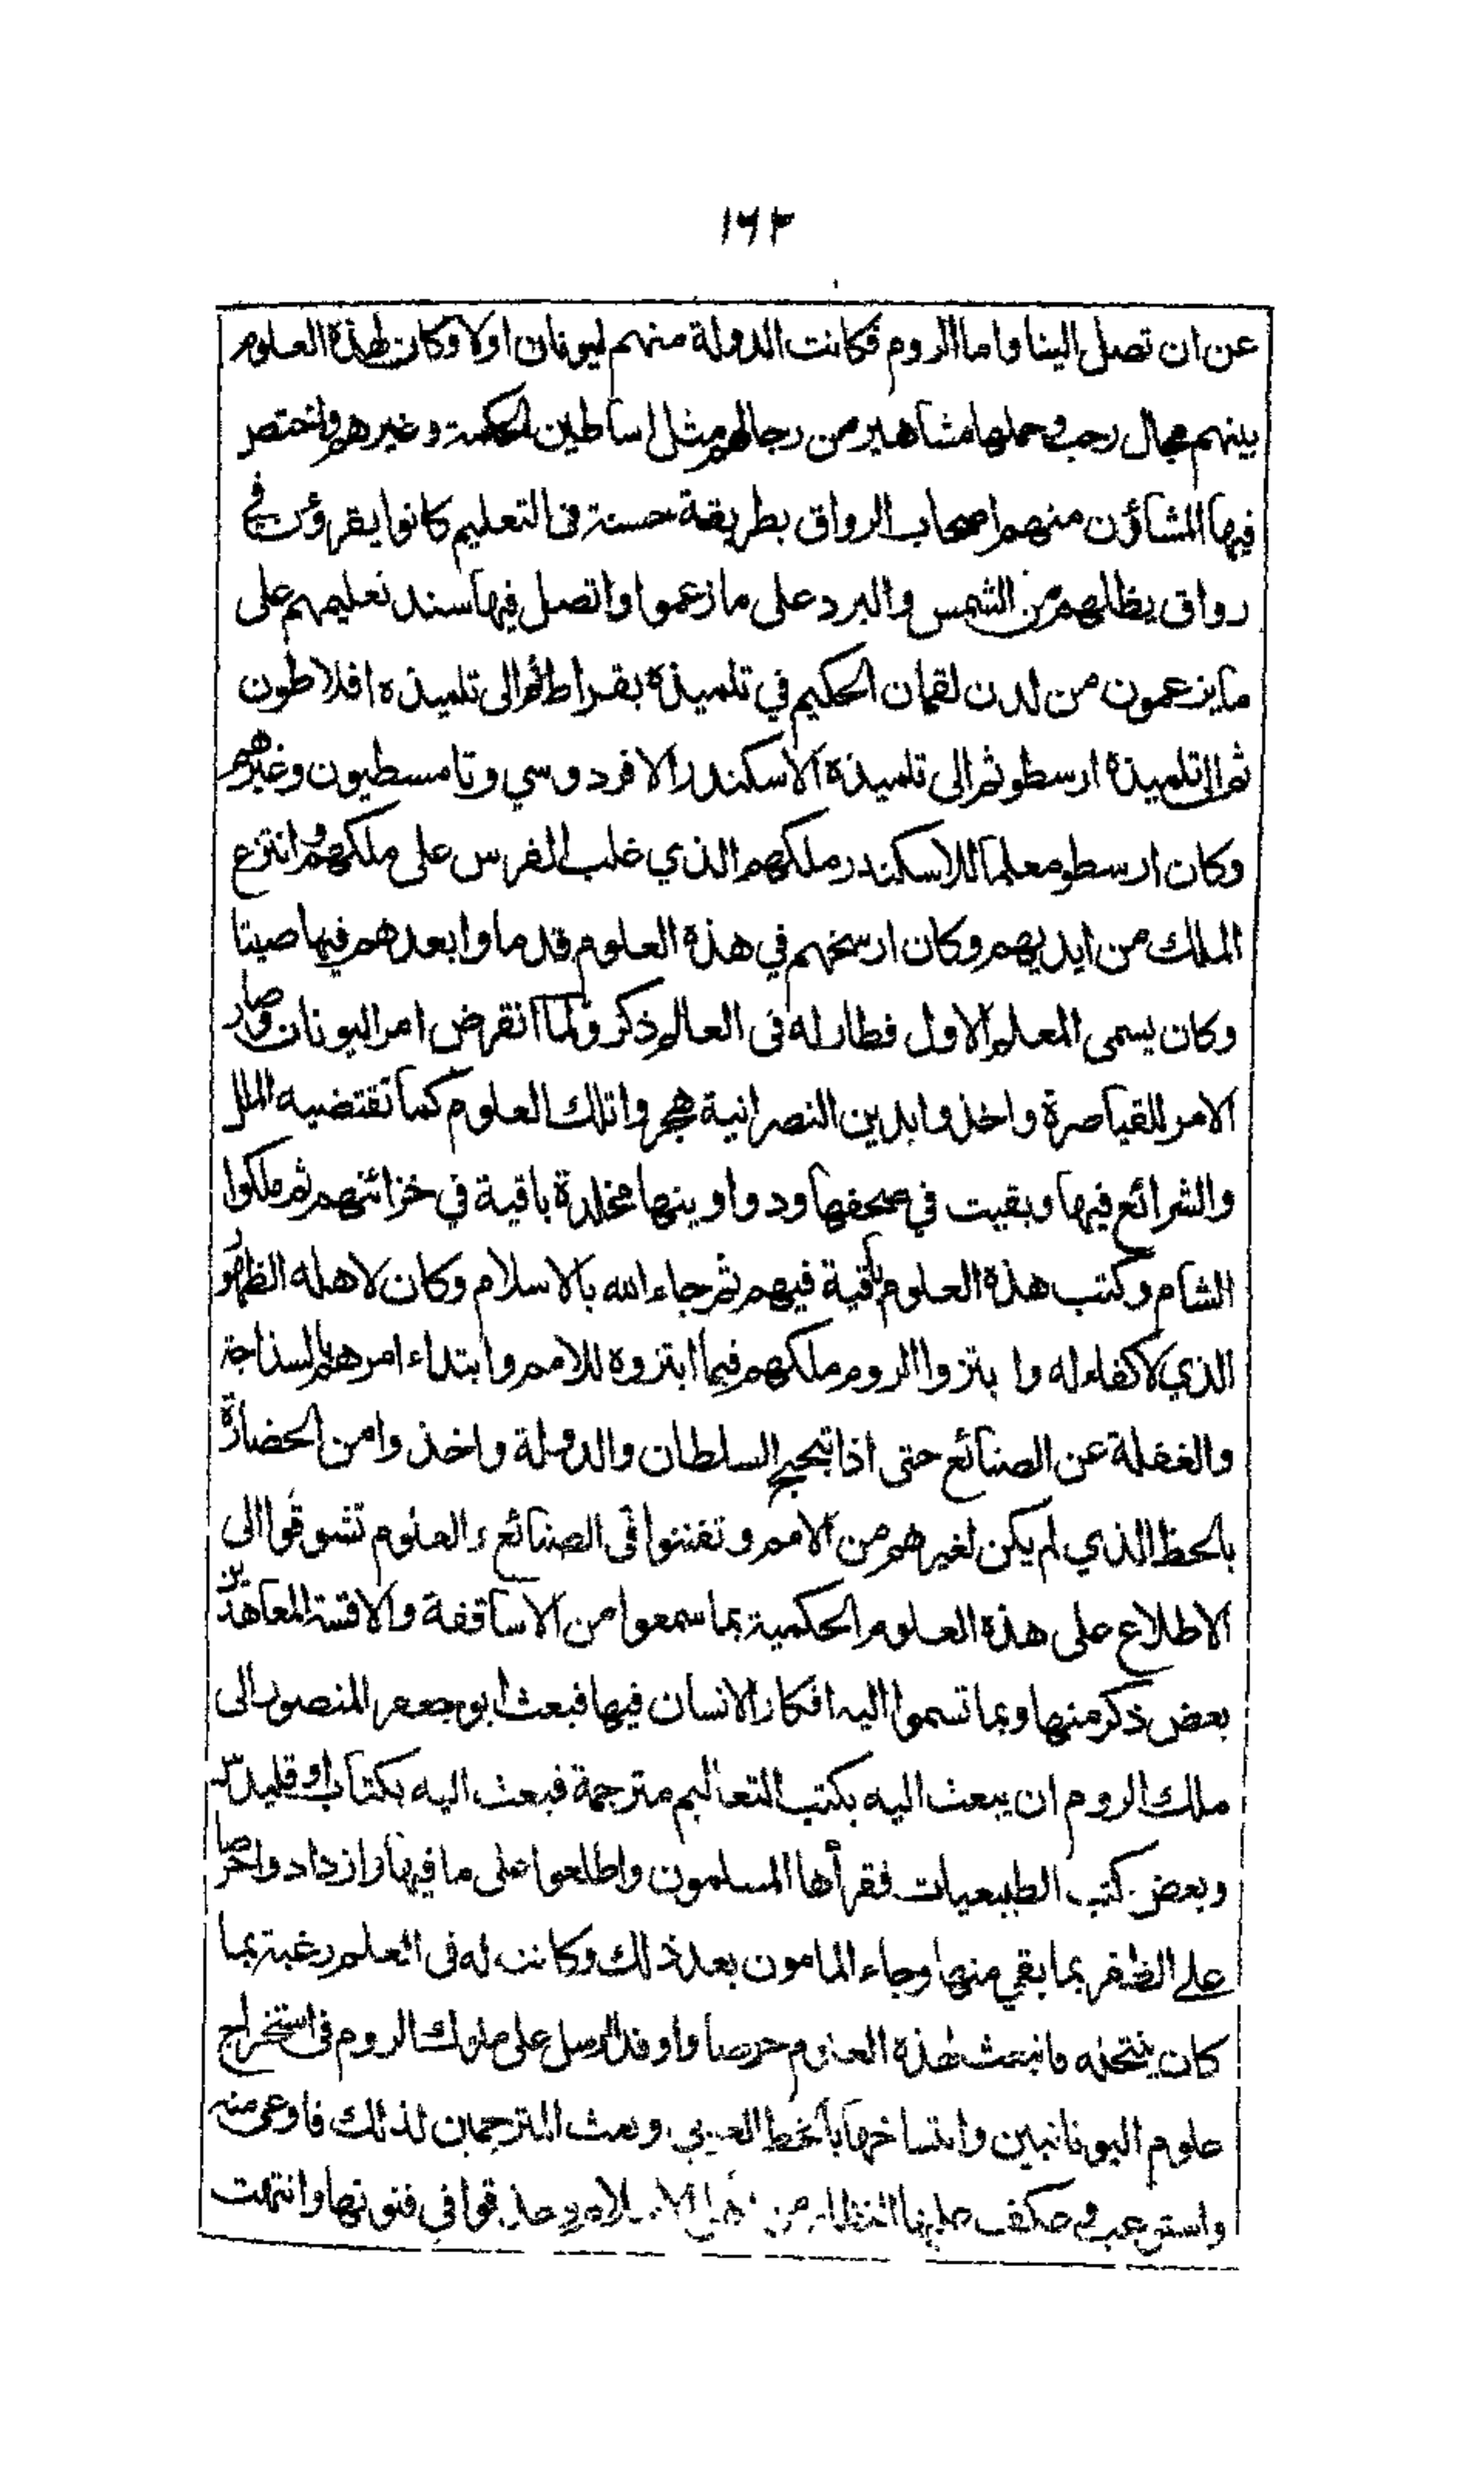 ١٦٢
عن ان تصل الينا واما الروم فكانت الدولة منهم ليونان اولا وكان لهذه العلوم
بينهم مجال رحب وحملها مشاهير من رجالهم مثل اساطين الحكمة وغيرهم واختص
فيها المشاؤن منهم اصحاب الرواق بطريقة حسنة في التعليم كانوا يقرؤن في
رواق يظلهم من الشمس والبرد على ما زعموا واتصل فيها سند تعليمهم على
ما يزعمون من لدن لقمان الحكيم في تلميذه بقراط ثم الى تلميذه افلاطون
ثم الى تلميذه ارسطو ثم الى تلميذه الاسكندر الافردوسي وتامسطيون وغيرهم
وكان ارسطو معلما للاسكندر ملكهم الذي غلب الفرس على ملكهم وانتزع
الملك من ايديهم وكان ارسخهم في هذه العلوم قدما وابعدهم فيها صيتا
وكان يسمى المعلم الاول فطار له في العالم ذكر ولما انقرض امر اليونان وصار
الامر للقياصرة واخذوا بدين النصرانية هجروا تلك العلوم كما تقتضيه الملل
والشرائع فيها وبقيت في صحفها ودواوينها مخلدة باقية في خزائنهم ثم ملكوا
الشام وكتب هذه العلوم باقية فيهم ثم جاء الله بالاسلام وكان لاهله الظهور
الذي لا كفاء له وابتزوا الروم ملكهم فيما ابتزوه للامم وابتداء امرهم بالسذاجة
والغفلة عن الصنائع حتى اذا تبحبح السلطان والدولة واخذوا من الحضارة
بالحظ الذي لم يكن لغيرهم من الامم وتفننوا في الصنائع والعلوم تشوقوا الى
الاطلاع على هذه العلوم الحكمية بما سمعوا من الاساقفة والاقسة المعاهدين
بعض ذكر منها وبما تسموا اليه افكار الانسان فيها فبعث ابو جعفر المنصور الى
ملك الروم ان يبعث اليه بكتب التعاليم مترجمة فبعث اليه بكتاب اوقليدس
وبعض كتب الطبيعيات فقرأها المسلمون واطلعوا على ما فيها وازدادوا حرصا
على الظفر بما بقي منها وجاء المامون بعد ذلك وكانت له في العلم رغبة بما
كان ينتحله فانبعث لهذه العلوم حرصا واوفد الرسل على ملوك الروم في استخراج
علوم اليونانيين وانتساخها بالخط العربي وبعث المترجمين لذلك فاوعى منه
واستوعب وعكف عليها النظار من اهل الاسلام وحذقوا في فنونها وانتهت